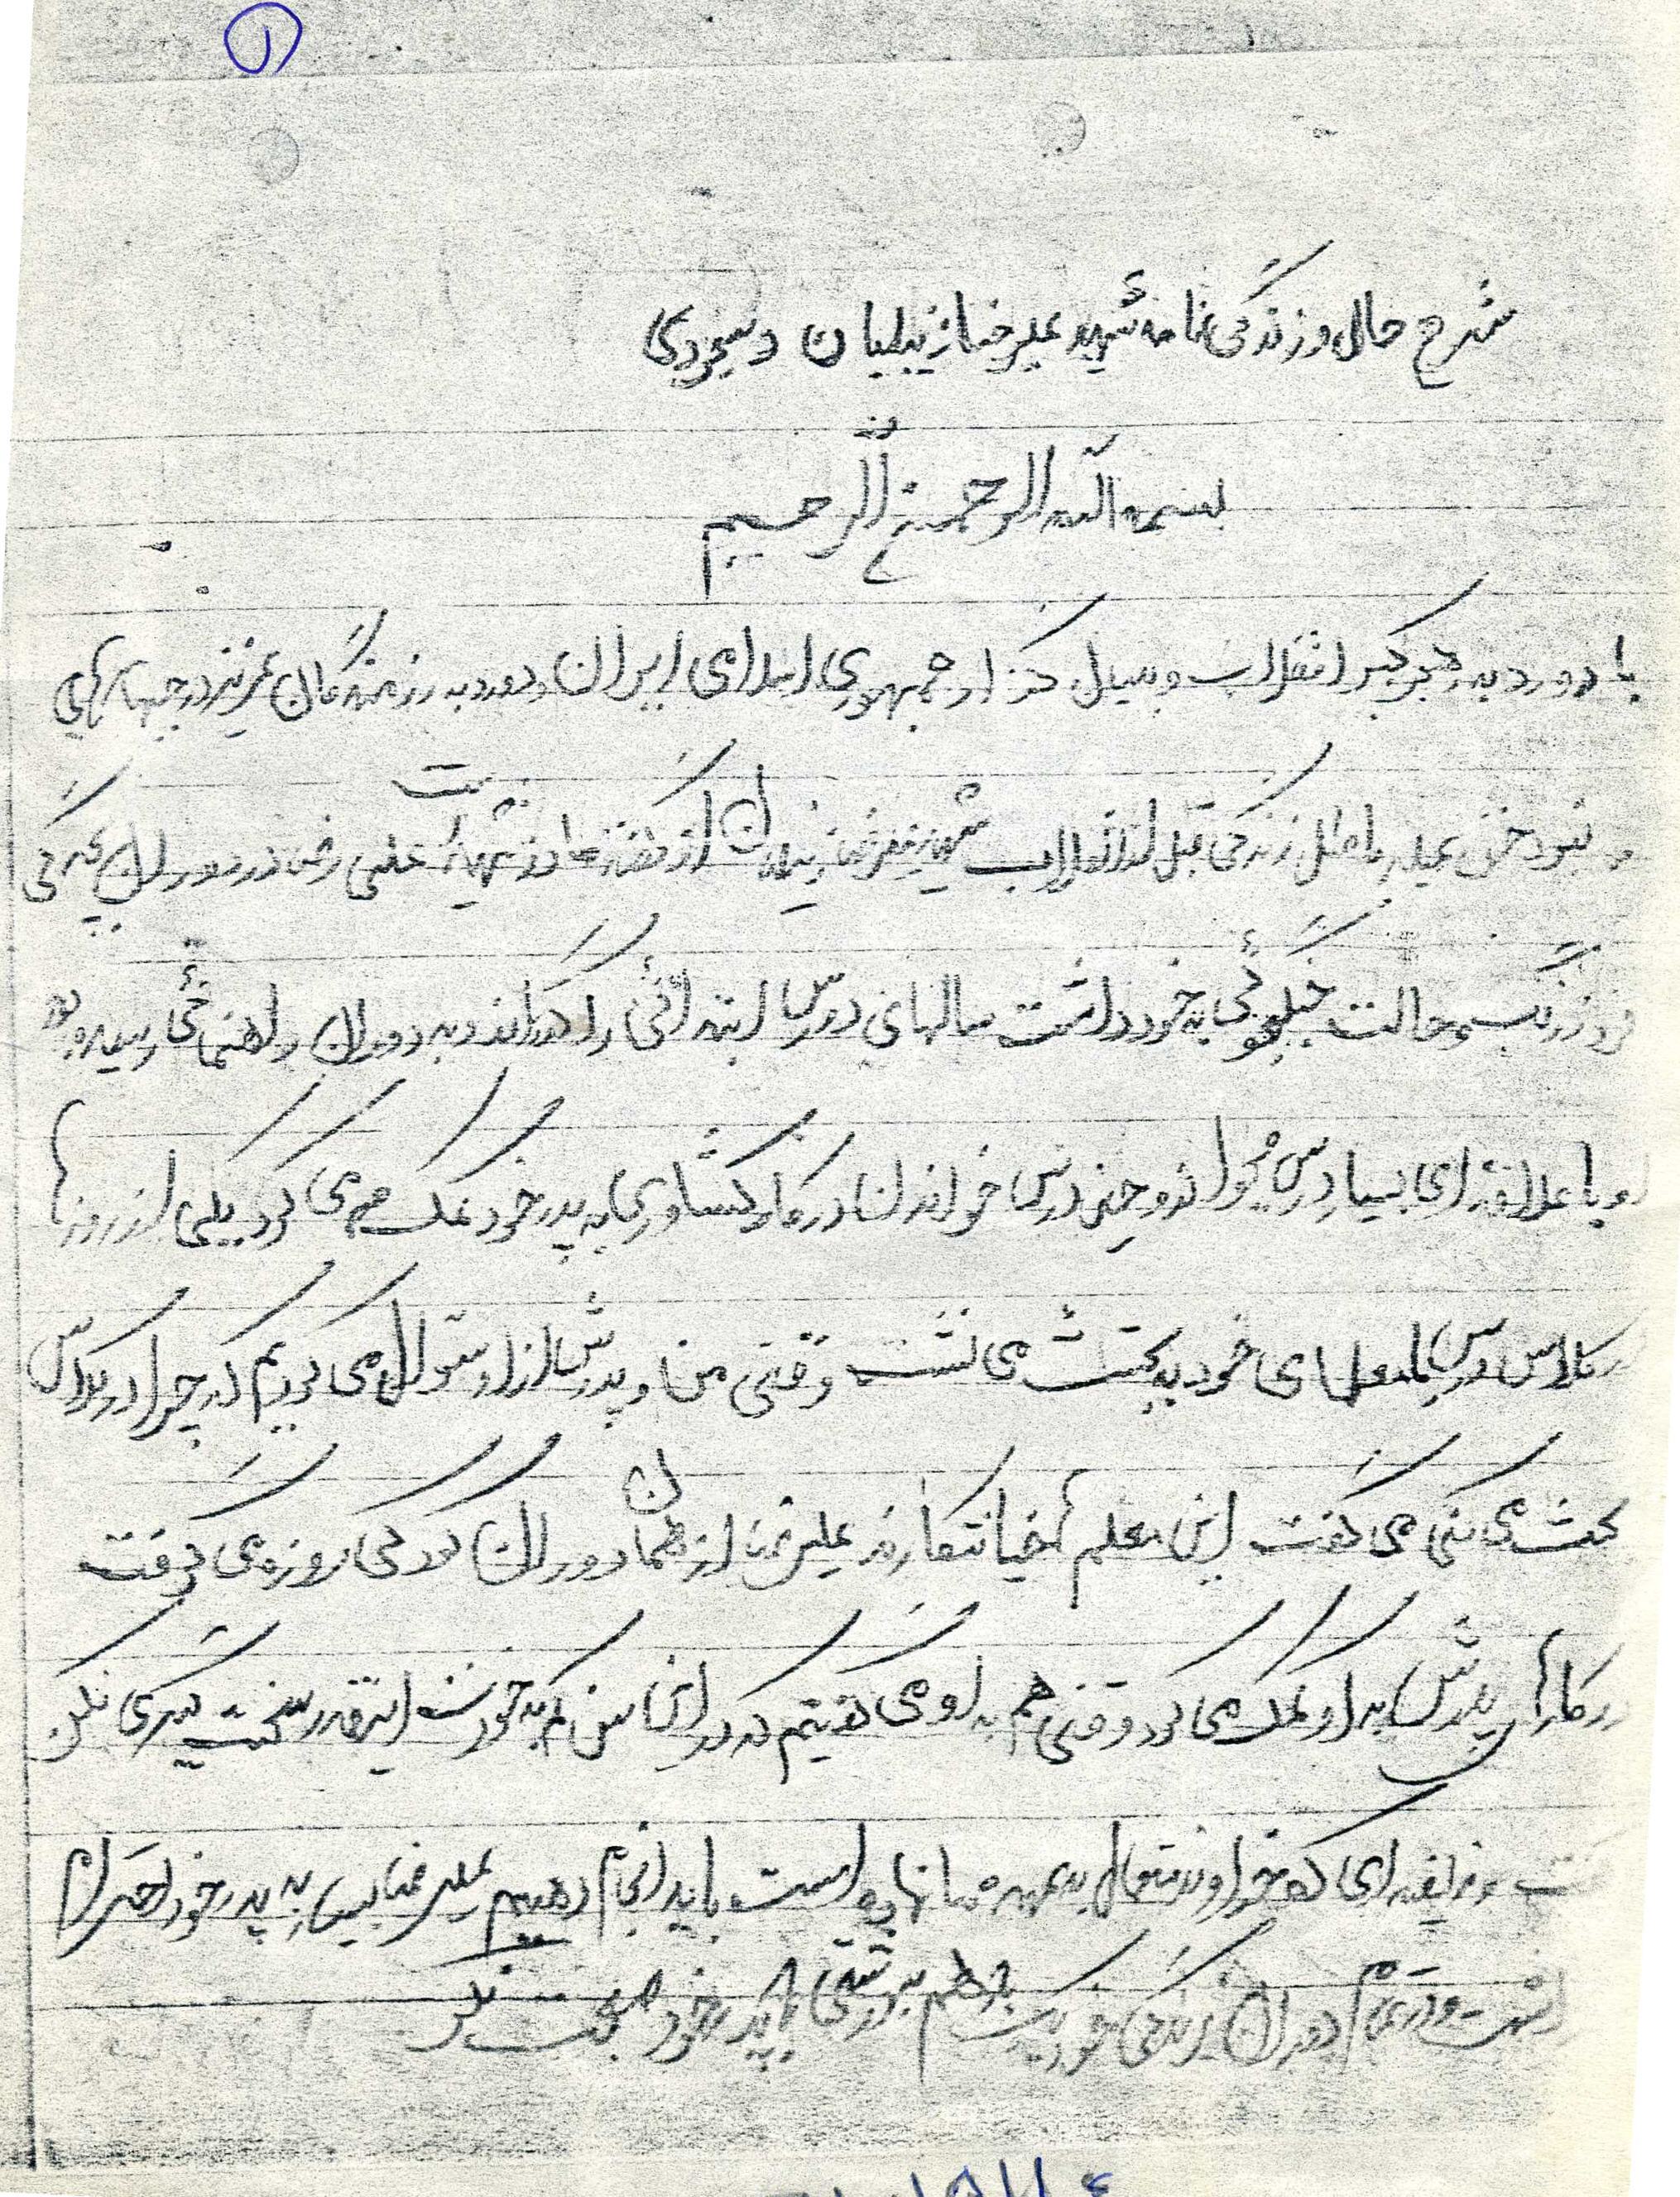 ۱
شرح حال و زندگی نامه شهید علیرضا زینلیان دستجردی
بسمه الله الرحمن الرحیم
با درود به رهبر کبیر انقلاب و بنیان گذار جمهوری اسلامی ایران و درود به رزمندگان عزیز در جبهه های
نبرد حق علیه باطل زندگی قبل از انقلاب شهید علیرضا زینلیان در دوران بچه گی
حالت جنگجوئی به خود داشت سالهای درس ابتدائی را گذراند و به دوران راهنمائی رسیده بود
و با علاقه ای بسیار درس میخواند و حین درس خواندن در کار کشاورزی به پدر خود کمک می کرد یکی از روزها
در کلاس درس با معلمهای خود به بحث می نشست وقتی من و پدرش از او سئوال می کردیم که چرا در کلاس
بحث می کنی می گفت این معلم ها خیانتکارند علیرضا از همان دوران کودکی روزه می گرفت
در کارهای پدرش به او کمک می کرد وقتی هم به او می گفتیم که در این سن کم به خودت اینقدر سخت گیری نکن
گفت وظیفه ای که خداوند متعال به عهده ما نهاده است باید انجام دهیم علیرضا بسیار به پدر خود احترام
داشت و در تمام دوران زندگی خود یک بار هم به درشتی با پدر خود صحبت نکرد